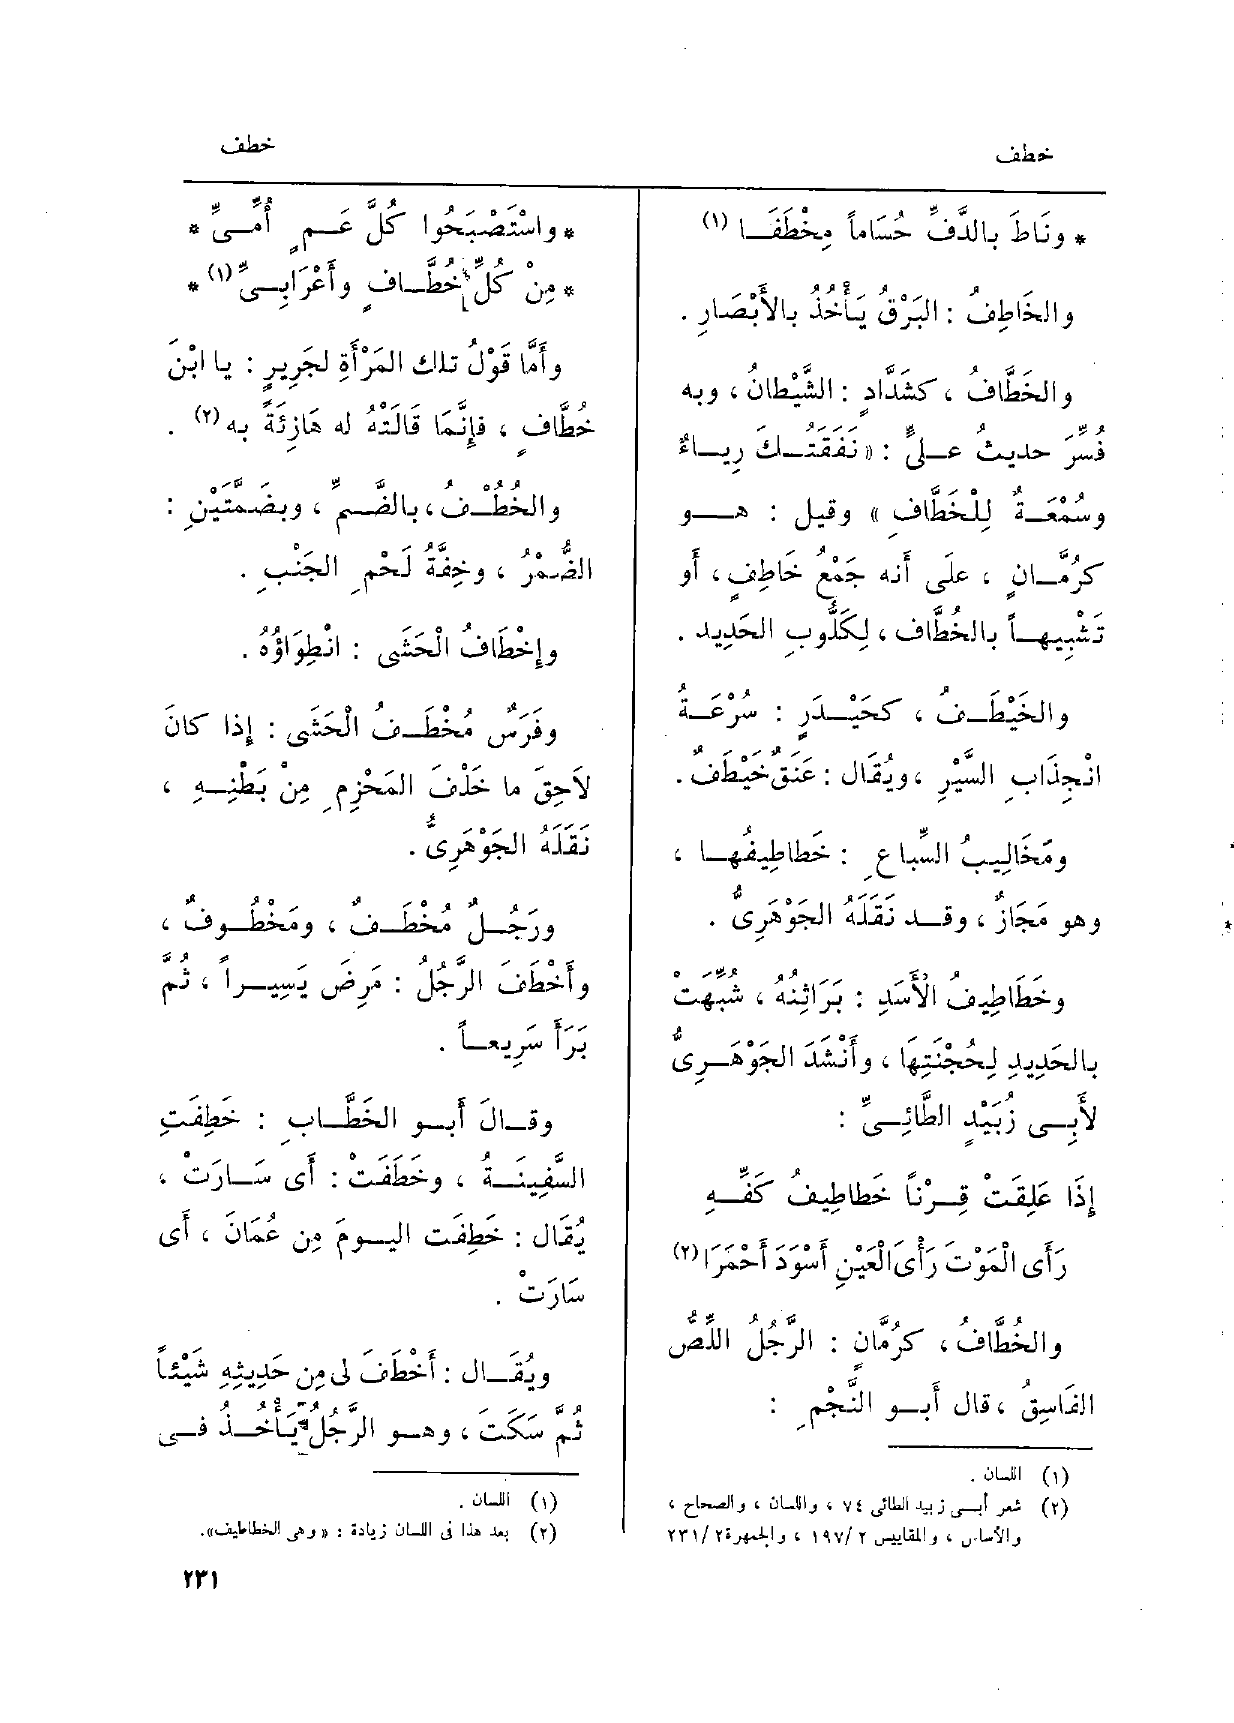 خطف
خطف
* ونَاطَ بِالدَّفِّ حُسَاماً مِخْطَفَــا (١)
والخَاطِفُ : البَرْقُ يَأْخُذُ بِالأَبْصَارِ .
والخَطَّافُ ، كشَدَّادٍ : الشَّيْطانُ ، وبه
فُسِّرَ حديثُ عــلِىٍّ : « نَفَقَتــكَ رِيــاءٌ
وسُمْعَــةٌ لِلْخَطَّافِ » وقيل : هــو
كرُمَّــانٍ ، علَى أنه جَمْعُ خَاطِفٍ ، أو
تَشْبِيهــاً بالخُطَّاف ، لِكَلُّوبِ الحَدِيد .
والخَيْطَــفُ ، كحَيْــدَرٍ : سُرْعَــةُ
انْجِذَابِ السَّيْرِ ، ويُقَال : عَنَقٌ خَيْطَفٌ .
ومَخَالِيبُ السِّباعِ : خَطاطِيفُهــا ،
وهو مَجَازٌ ، وقــد نَقَلَهُ الجَوْهَرِىُّ .
وخَطَاطِيفُ الأَسَدِ : بَرَاثِنُهُ ، شُبِّهَتْ
بالحَدِيدِ لِحُجْنَتِهَا ، وأَنْشَدَ الجَوْهَــرِىُّ
لأَبِــى زُبَيْدٍ الطَّائِــىِّ :
إِذَا عَلِقَتْ قِــرْناً خَطاطِيفُ كَفِّــهِ
رَأَى الْمَوْتَ رَأْىَ الْعَيْنِ أَسْوَدَ أَحْمَرَا (٢)
والخُطَّافُ ، كرُمَّانٍ : الرَّجُلُ اللِّصُّ
الفَاسِقُ ، قال أَبــو النَّجْمِ :
(١) اللسان .
(٢) شعر أبــى زبيد الطائى ٧٤ ، واللسان ، والصحاح ،
والأساس ، والمقاييس ٢ /١٩٧ ، والجمهرة ٢ /٢٣١
* واسْتَصْبَحُوا كُلَّ عَــمٍ أُمِّــىِّ *
* مِنْ كُلِّ خُطَّــافٍ وأَعْرَابِــىِّ (١) *
وأَمَّا قَوْلُ تلك المَرْأَةِ لجَرِيرٍ : يا ابْنَ
خُطَّافٍ ، فإِنَّمَا قَالَتْهُ له هَازِئَةً به (٢) .
والخُطْــفُ ، بالضَّــمِّ ، وبضَــمَّتَيْنِ :
الضُّــمْرُ ، وخِفَّةُ لَحْمِ الجَنْبِ .
وإِخْطَافُ الْحَشَى : انْطِوَاؤُهُ .
وفَرَسٌ مُخْطَــفُ الْحَشَى : إِذا كانَ
لاَحِقَ ما خَلْفَ المَحْزِمِ مِنْ بَطْنِــهِ ،
نَقَلَهُ الجَوْهَرِىُّ .
ورَجُــلٌ مُخْطَــفٌ ، ومَخْطُــوفٌ ،
وأَخْطَفَ الرَّجُلُ : مَرِضَ يَسِيــراً ، ثُمَّ
بَرَأَ سَرِيعــاً .
وقــالَ أَبــو الخَطَّــابِ : خَطِفَتِ
السَّفِينَــةُ ، وخَطَفَتْ : أَى سَــارَتْ ،
يُقَال : خَطِفَت اليــومَ مِن عُمَانَ ، أَى
سَارَتْ .
ويُقَــال : أَخْطَفَ لى مِن حَدِيثِهِ شَيْئاً
ثُمَّ سَكَتَ ، وهــو الرَّجُلُ يَأْخُــذُ فــى
(١) اللسان .
(٢) بعد هذا فى اللسان زيادة : « وهى الخطاطيف» .
٢٣١